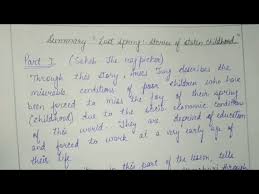 Summary "Lost Spring: Stories of stolen childhood"
Part I (Saheb The rag picker)
Through this story, Anees Jung describes the
miserable conditions of poor children who have
been forced to miss the joy of their spring
(childhood) due to the socio economic conditions
of this world. They are deprived of education
and forced to work at a very early age of
their life
in this part of the lesson, tells
through